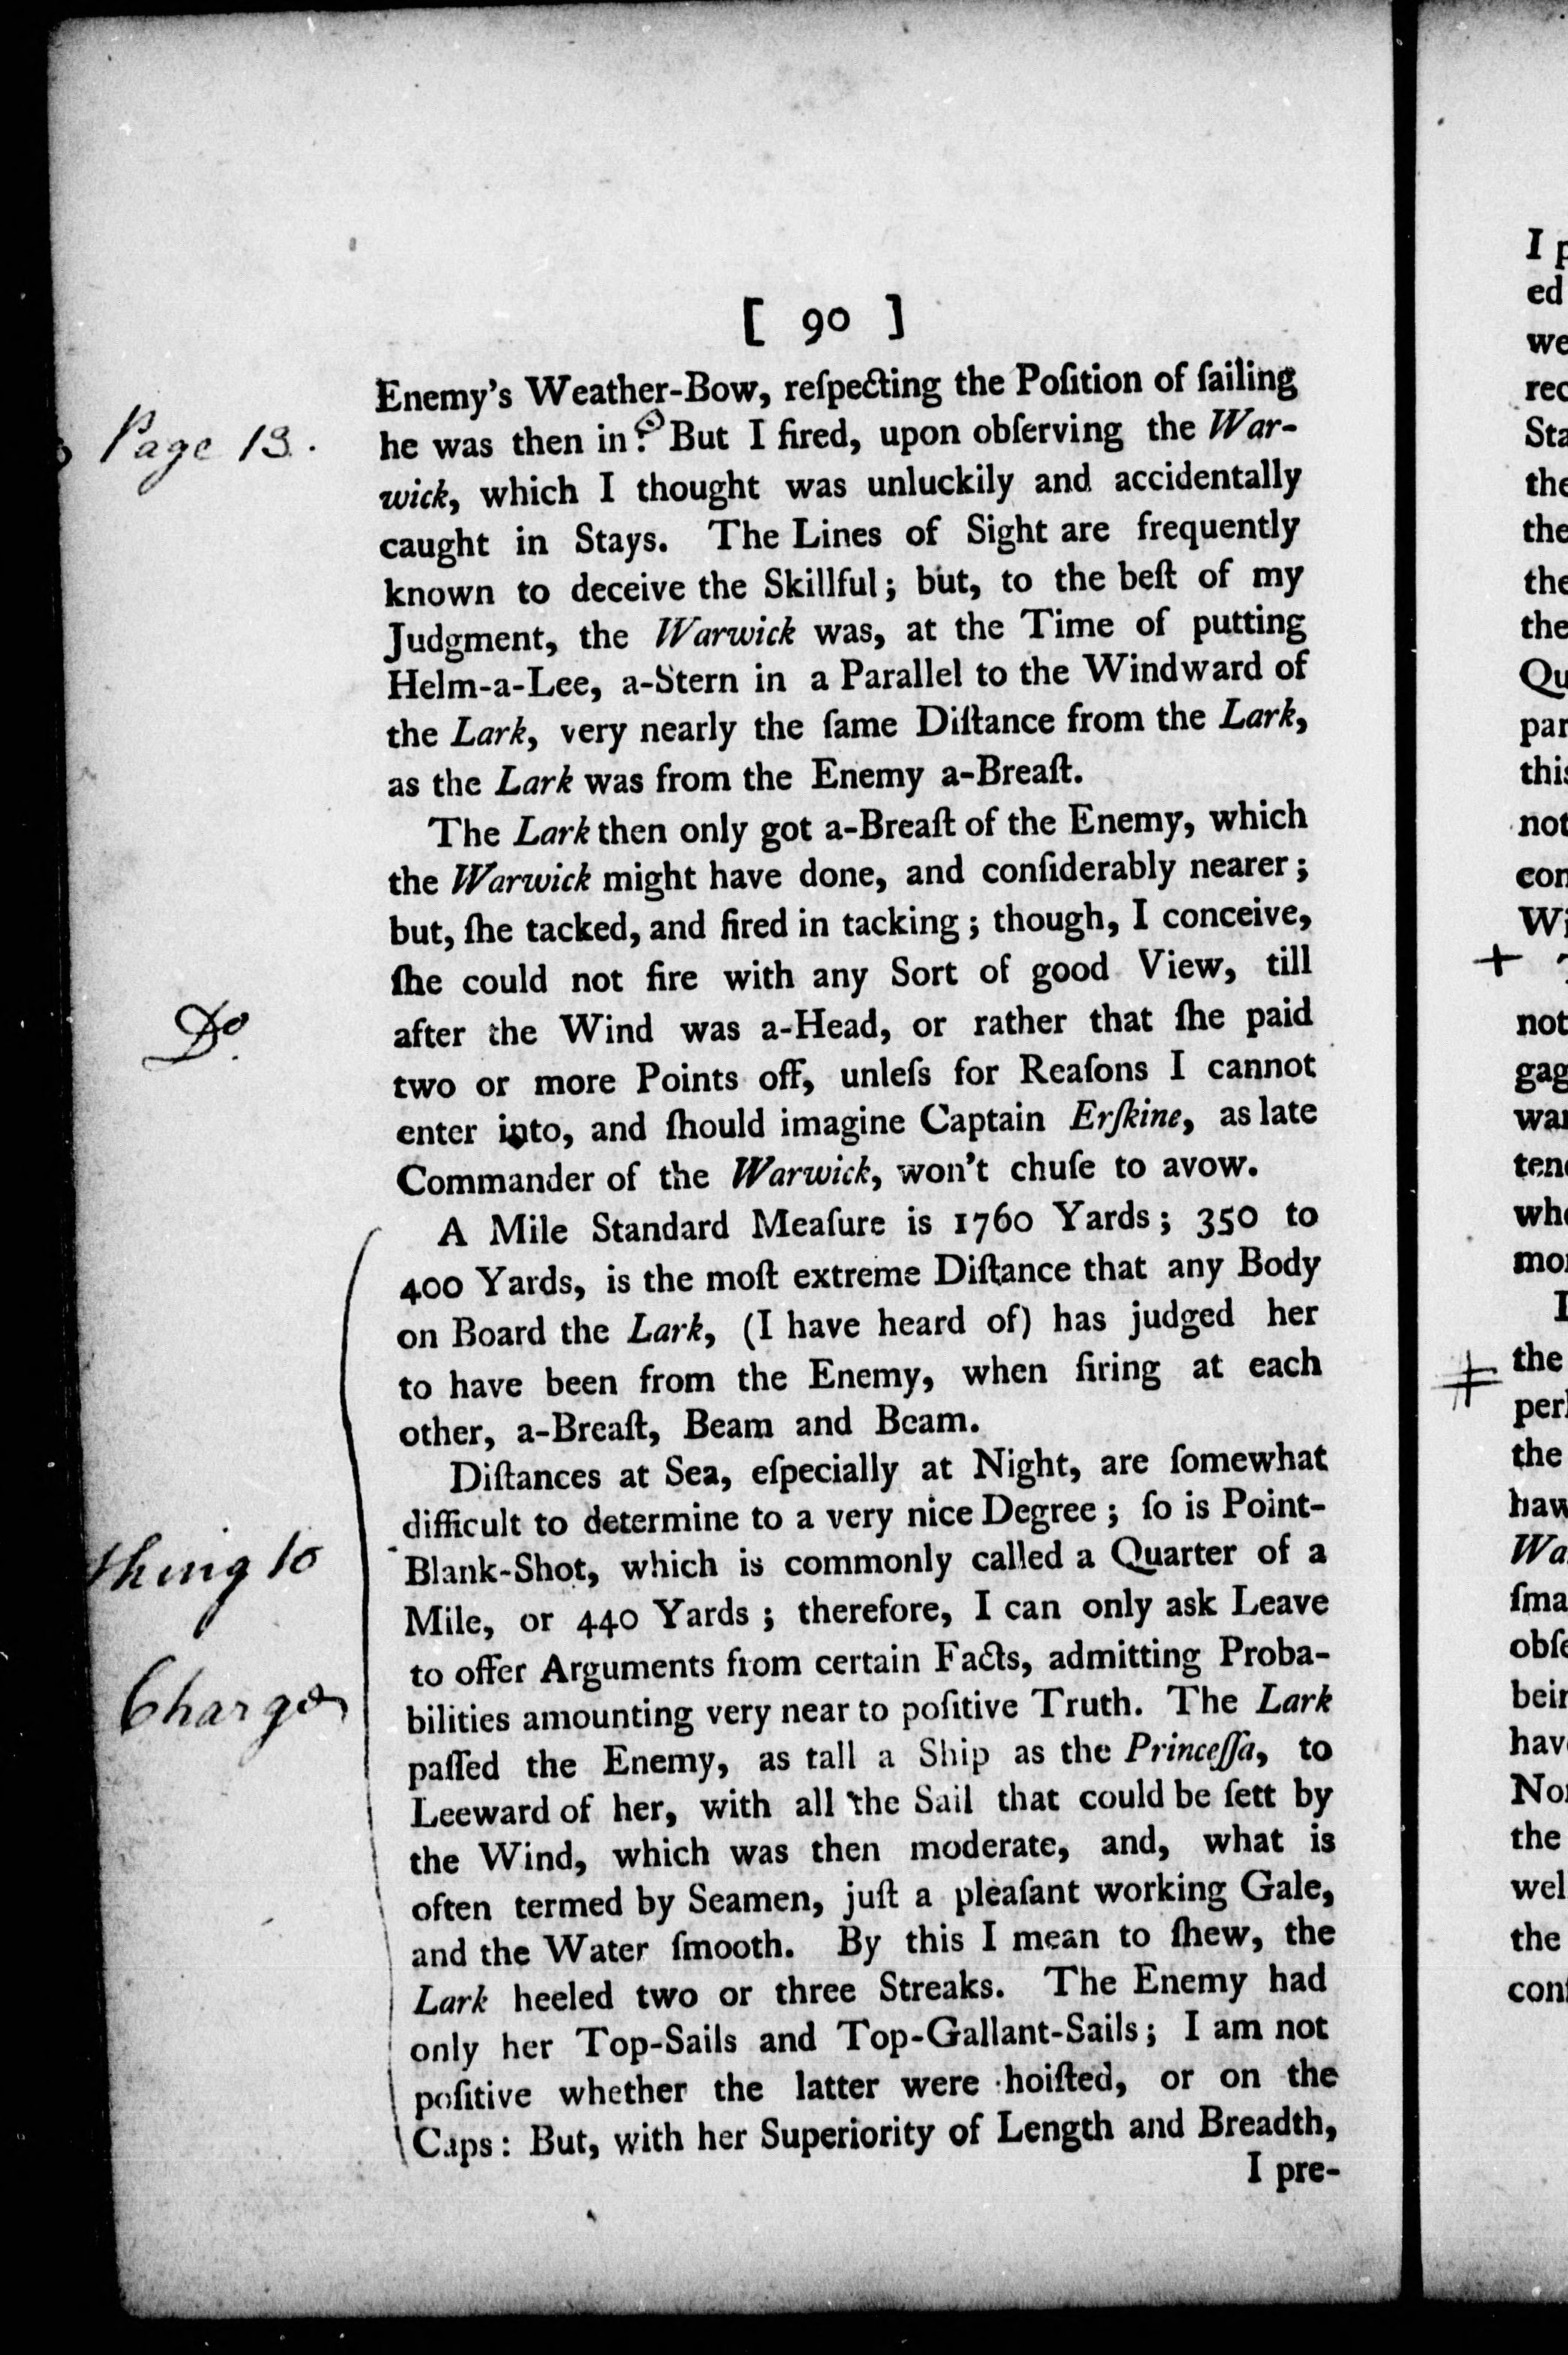 [ 90 ]
Enemy's Weather-Bow, reſpecting the Poſition of ſailing
Page 13.
he was then in? But I fired, upon obſerving the War-
wick, which I thought was unluckily and accidentally
caught in Stays. The Lines of Sight are frequently
known to deceive the Skillful; but, to the beſt of my
Judgment, the Warwick was, at the Time of putting
Helm-a-Lee, a-Stern in a Parallel to the Windward of
the Lark, very nearly the ſame Diſtance from the Lark,
as the Lark was from the Enemy a-Breaſt.
The Lark then only got a-Breaſt of the Enemy, which
the Warwick might have done, and conſiderably nearer;
but, ſhe tacked, and fired in tacking; though, I conceive,
ſhe could not fire with any Sort of good View, till
after the Wind was a-Head, or rather that ſhe paid
Do.
two or more Points off, unleſs for Reaſons I cannot
enter into, and ſhould imagine Captain Erſkine, as late
Commander of the Warwick, won't chuſe to avow.
A Mile Standard Meaſure is 1760 Yards; 350 to
400 Yards, is the moſt extreme Diſtance that any Body
on Board the Lark, (I have heard of) has judged her
to have been from the Enemy, when firing at each
other, a-Breaſt, Beam and Beam.
Diſtances at Sea, eſpecially at Night, are ſomewhat
difficult to determine to a very nice Degree; ſo is Point-
Blank-Shot, which is commonly called a Quarter of a
thing to
Mile, or 440 Yards; therefore, I can only ask Leave
to offer Arguments from certain Facts, admitting Proba-
bilities amounting very near to poſitive Truth. The Lark
Charge
paſſed the Enemy, as tall a Ship as the Princeſſa, to
Leeward of her, with all the Sail that could be ſett by
the Wind, which was then moderate, and, what is
often termed by Seamen, juſt a pleaſant working Gale,
and the Water ſmooth. By this I mean to ſhew, the
Lark heeled two or three Streaks. The Enemy had
only her Top-Sails and Top-Gallant-Sails; I am not
poſitive whether the latter were hoiſted, or on the
Caps: But, with her Superiority of Length and Breadth,
I pre-
I p
ed
we
rec
Sta
the
the
the
the
Qu
par
this
not
con
Wi
+
not
gag
war
tend
who
mor
I
the
perh
the
haw
Wa
ſma
obſe
bein
have
Nor
the
wel
the
conſ